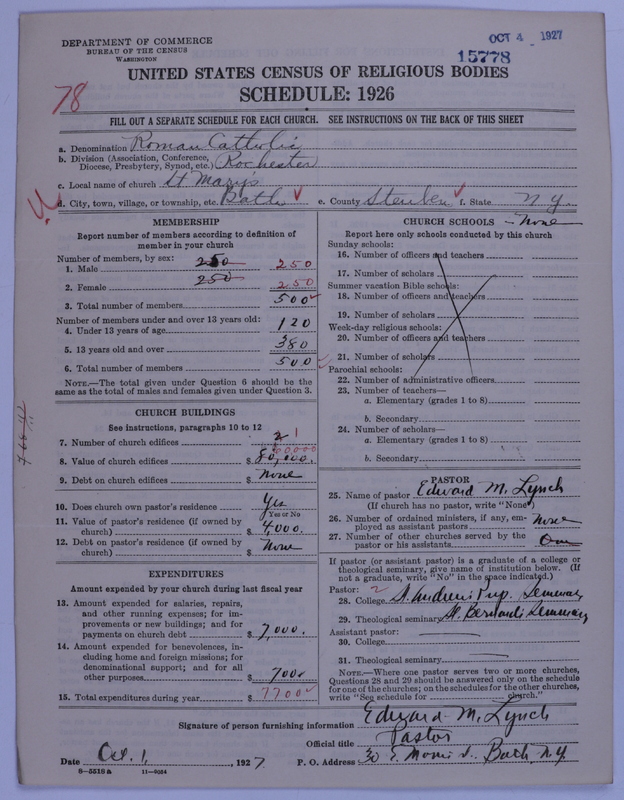 DEPARTMENT OF COMMERCE
BUREAU OF THE CENSUS
WASHINGTON
OCT 4 1927
15778
UNITED STATES CENSUS OF RELIGIOUS BODIES
SCHEDULE: 1926
78
FILL OUT A SEPARATE SCHEDULE FOR EACH CHURCH. SEE INSTRUCTIONS ON THE BACK OF THIS SHEET
a. Denomination Roman Catholic
b. Division (Association, Conference, Diocese, Presbytery, Synod, etc.) Rochester
c. Local name of church St Mary's
d. City, town, village, or township, etc. Bath e. County Steuben f. State N Y
MEMBERSHIP
Report number of members according to definition of
member in your church
Number of members, by sex:
1. Male 250 250
2. Female 250 250
3. Total number of members 500
Number of members under and over 13 years old:
4. Under 13 years of age 120
5. 13 years old and over 380
6. Total number of members 500
NOTE.—The total given under Question 6 should be the
same as the total of males and females given under Question 3.
CHURCH BUILDINGS
See instructions, paragraphs 10 to 12
7. Number of church edifices 2 1
8. Value of church edifices $ 80,000.
9. Debt on church edifices $ None
10. Does church own pastor's residence Yes
Yes or No
11. Value of pastor's residence (if owned by
church) $ 4,000.
12. Debt on pastor's residence (if owned by
church) $ None
EXPENDITURES
Amount expended by your church during last fiscal year
13. Amount expended for salaries, repairs,
and other running expenses; for im-
provements or new buildings; and for
payments on church debt $ 7,000.
14. Amount expended for benevolences, in-
cluding home and foreign missions; for
denominational support; and for all
other purposes $ 700
15. Total expenditures during year $ 7700
CHURCH SCHOOLS — None
Report here only schools conducted by this church
Sunday schools:
16. Number of officers and teachers
17. Number of scholars
Summer vacation Bible schools:
18. Number of officers and teachers
19. Number of scholars
Week-day religious schools:
20. Number of officers and teachers
21. Number of scholars
Parochial schools:
22. Number of administrative officers
23. Number of teachers—
a. Elementary (grades 1 to 8)
b. Secondary
24. Number of scholars—
a. Elementary (grades 1 to 8)
b. Secondary
PASTOR
25. Name of pastor Edward M. Lynch
(If church has no pastor, write "None")
26. Number of ordained ministers, if any, em-
ployed as assistant pastors None
27. Number of other churches served by the
pastor or his assistants One
If pastor (or assistant pastor) is a graduate of a college or
theological seminary, give name of institution below. (If
not a graduate, write "No" in the space indicated.)
Pastor: 2
28. College St. Andrews Prep. Seminary
29. Theological seminary St. Bernards Seminary
Assistant pastor:
30. College
31. Theological seminary
NOTE.—Where one pastor serves two or more churches,
Questions 28 and 29 should be answered only on the schedule
for one of the churches; on the schedules for the other churches,
write "See schedule for church."
Signature of person furnishing information Edward M. Lynch
Official title Pastor
Date Oct. 1, 1927 P. O. Address 30 E. Morris St. Bath, N.Y.
8—5518 a 11—9054